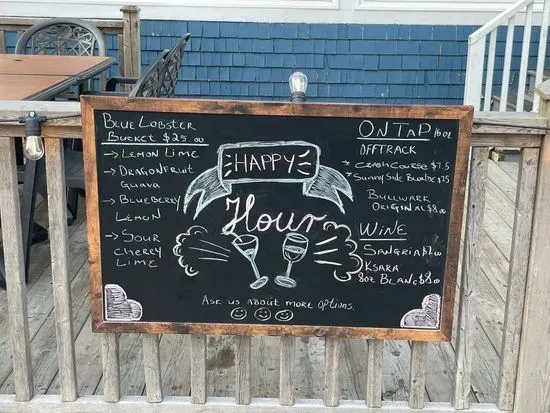 Blue Lobster
Bucket $25.00
→ Lemon Lime
→ Dragonfruit
Guava
→ Blueberry
Lemon
→ Sour
Cherry
Lime
HAPPY
Hour
Ask us about more options.
ON TAP 16oz
OFFTRACK
* Crash Course $7.5
* Sunny Side Blonde $7.5
Bullwark
Original $8.00
WiNE
Sangria
Ksara
8oz Blanc